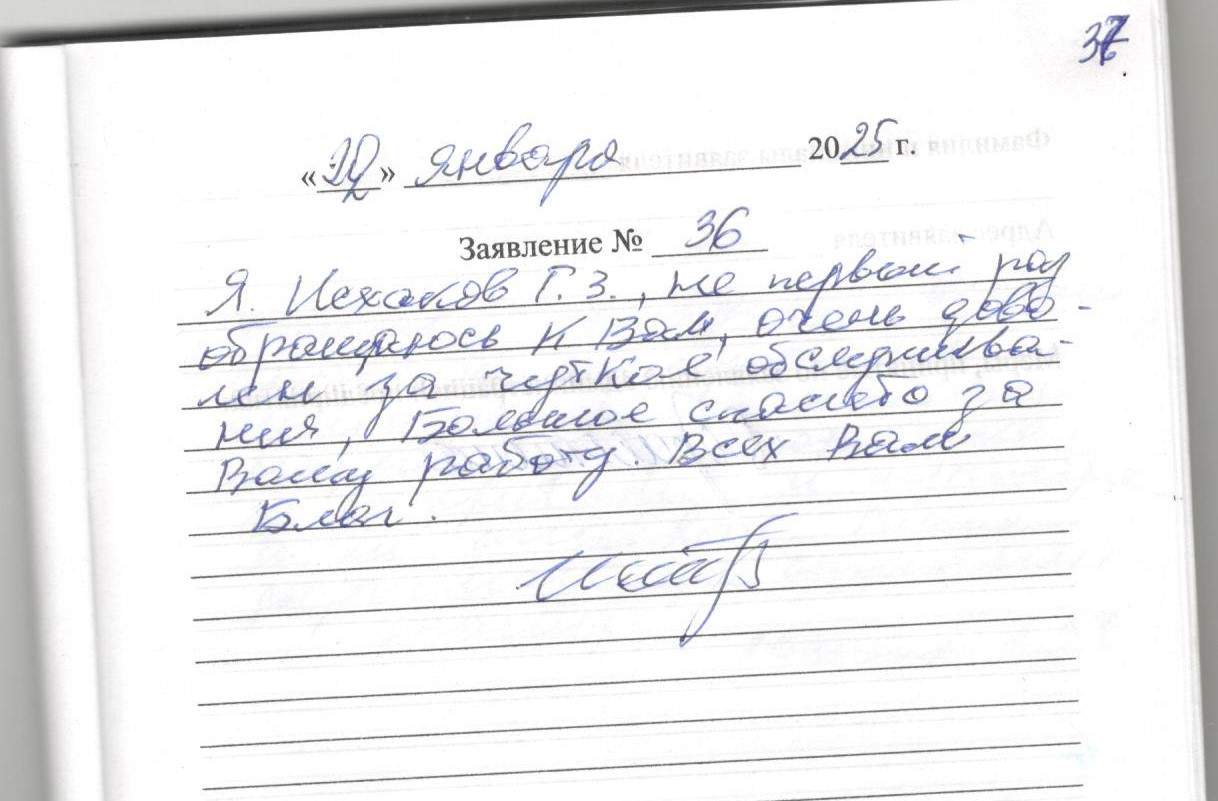 37
« » января 2025 г.
Заявление № 36
Я. Исхаков Г.З., не первый раз
обращаюсь к Вам, очень дово-
лен за чуткое обслужива-
ния, Большое спасибо за
Вашу работу. Всех Вам
Благ.